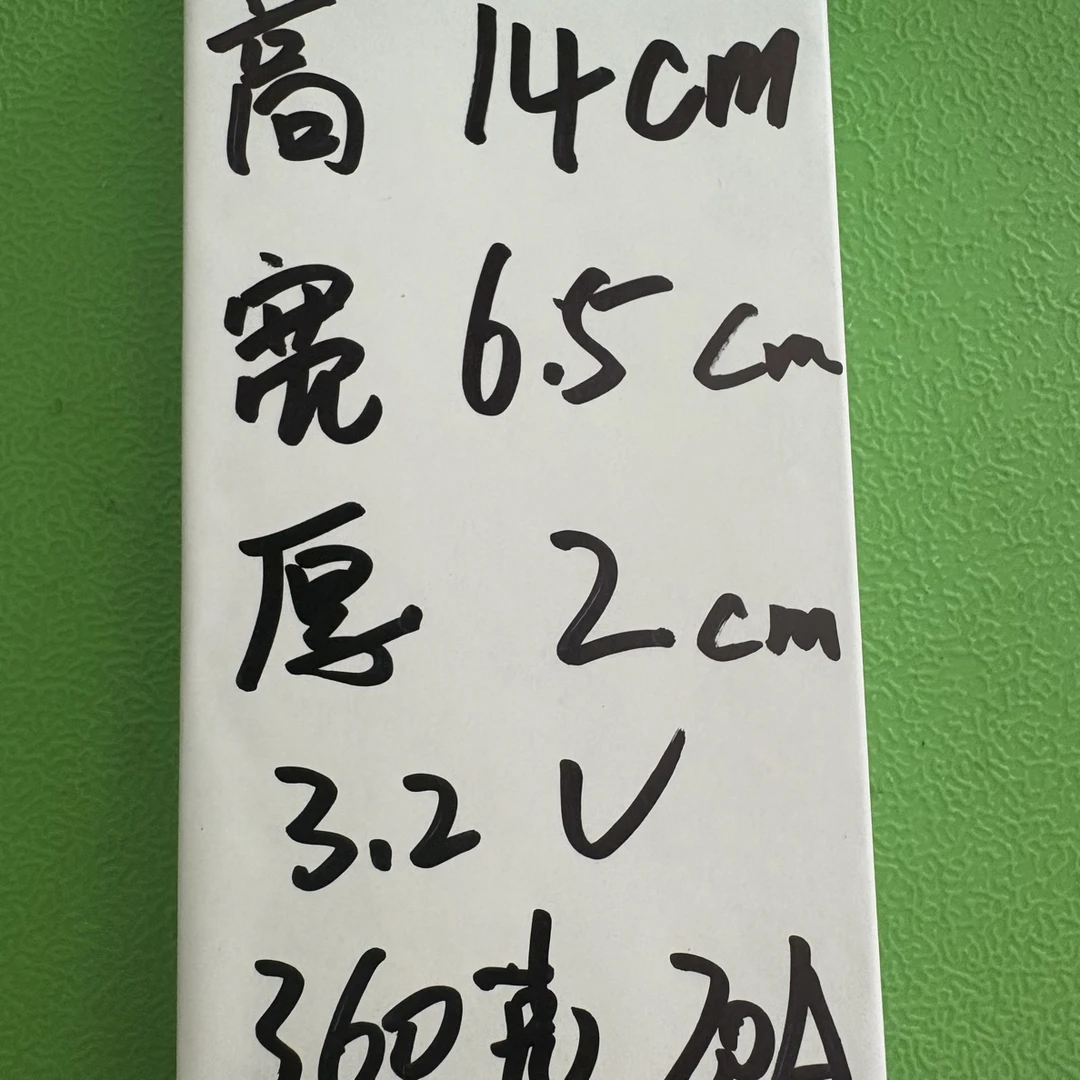 高 14cm
宽 6.5cm
厚 2cm
3.2V
360克 20A